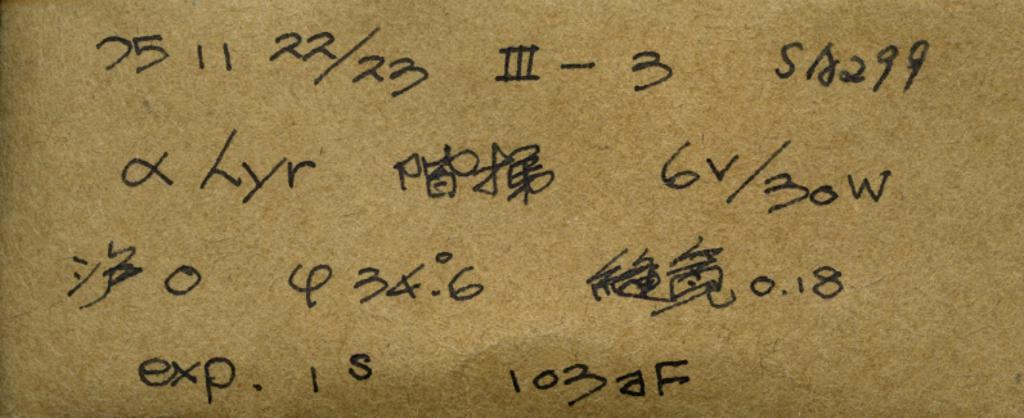 75 11 22/23 III - 3 SA299
α Lyr 階梯 6V/30W
浄 0 φ 34.°6 縫寛 0.18
exp. 1 s 103aF